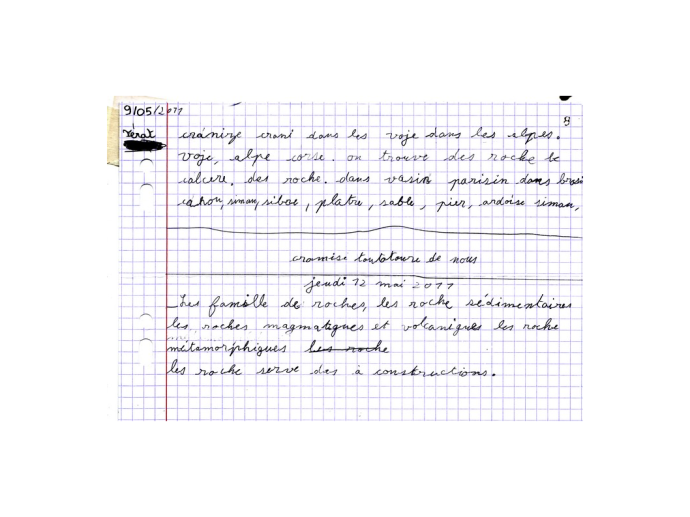 9/05/2011
8
Térat cránize crani dans les voje dans les alpes.
voje, alpe corse. on trouve des roche le
calcere. des roche. dans vasin parisin dans brasi
cahou, siman, siboe, platre, sable, pier, ardoise siman,
cromise toutotoure de nous
jeudi 12 mai 2011
Les famille de roches, les roche sédimentaires
les roches magmatiques et volcaniques les roche
métamorphiques les roche
les roche serve des à constructions.